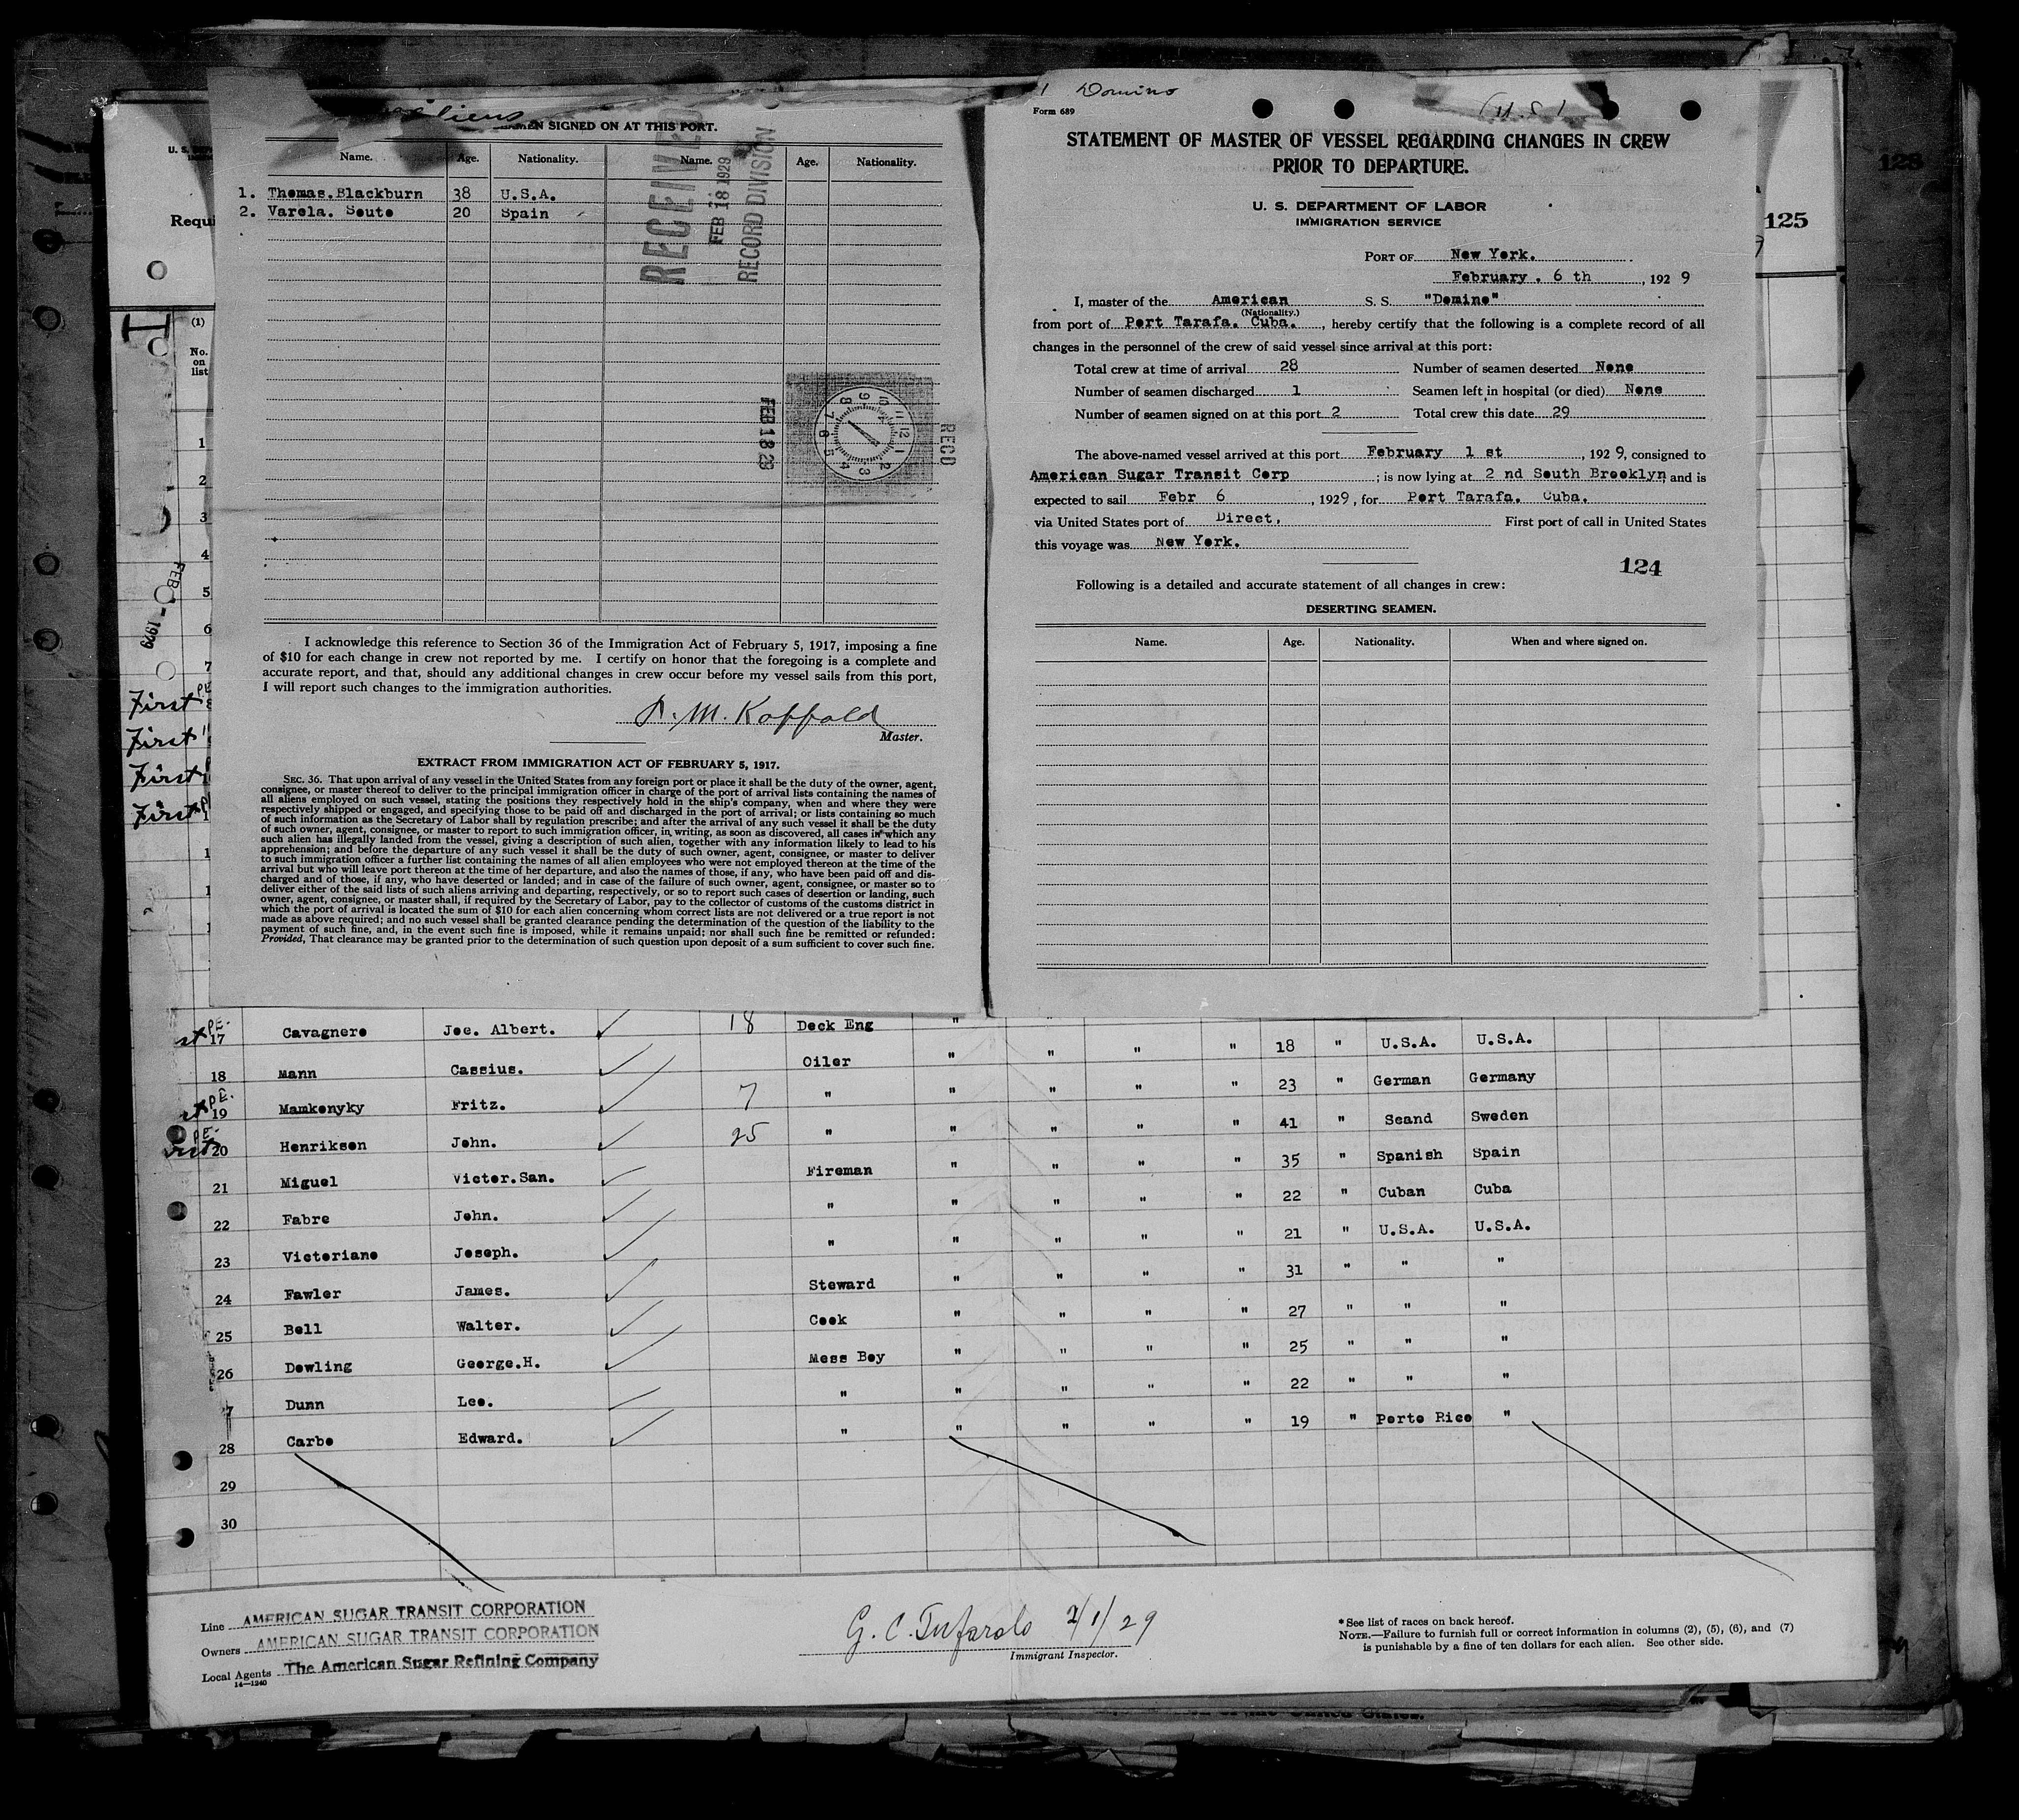 Domino
Form 689
STATEMENT OF MASTER OF VESSEL REGARDING CHANGES IN CREW
PRIOR TO DEPARTURE.
U. S. DEPARTMENT OF LABOR
IMMIGRATION SERVICE
PORT OF New York.
February . 6 th , 192 9
I, master of the American S. S. "Domino"
(Nationality.)
from port of Port Tarafa. Cuba. , hereby certify that the following is a complete record of all
changes in the personnel of the crew of said vessel since arrival at this port:
Total crew at time of arrival 28 Number of seamen deserted None
Number of seamen discharged 1 Seamen left in hospital (or died) None
Number of seamen signed on at this port 2 Total crew this date 29
The above-named vessel arrived at this port February 1 st , 192 9, consigned to
American Sugar Transit Corp ; is now lying at 2 nd South Brooklyn and is
expected to sail Febr 6 , 1929, for Port Tarafa. Cuba.
via United States port of Direct, First port of call in United States
this voyage was New York.
124
Following is a detailed and accurate statement of all changes in crew:
DESERTING SEAMEN.
Name. Age. Nationality. When and where signed on.
aliens
SIGNED ON AT THIS PORT.
Name. Age. Nationality. Name. Age. Nationality.
1. Thomas.Blackburn 38 U.S.A.
2. Varela. Souto 20 Spain
RECEIVED
FEB 18 1929
RECORD DIVISION
FEB 18 29
RECD
I acknowledge this reference to Section 36 of the Immigration Act of February 5, 1917, imposing a fine
of $10 for each change in crew not reported by me. I certify on honor that the foregoing is a complete and
accurate report, and that, should any additional changes in crew occur before my vessel sails from this port,
I will report such changes to the immigration authorities.
Master.
EXTRACT FROM IMMIGRATION ACT OF FEBRUARY 5, 1917.
SEC. 36. That upon arrival of any vessel in the United States from any foreign port or place it shall be the duty of the owner, agent,
consignee, or master thereof to deliver to the principal immigration officer in charge of the port of arrival lists containing the names of
all aliens employed on such vessel, stating the positions they respectively hold in the ship's company, when and where they were
respectively shipped or engaged, and specifying those to be paid off and discharged in the port of arrival; or lists containing so much
of such information as the Secretary of Labor shall by regulation prescribe; and after the arrival of any such vessel it shall be the duty
of such owner, agent, consignee, or master to report to such immigration officer, in writing, as soon as discovered, all cases in which any
such alien has illegally landed from the vessel, giving a description of such alien, together with any information likely to lead to his
apprehension; and before the departure of any such vessel it shall be the duty of such owner, agent, consignee, or master to deliver
to such immigration officer a further list containing the names of all alien employees who were not employed thereon at the time of the
arrival but who will leave port thereon at the time of her departure, and also the names of those, if any, who have been paid off and dis-
charged and of those, if any, who have deserted or landed; and in case of the failure of such owner, agent, consignee, or master so to
deliver either of the said lists of such aliens arriving and departing, respectively, or so to report such cases of desertion or landing, such
owner, agent, consignee, or master shall, if required by the Secretary of Labor, pay to the collector of customs of the customs district in
which the port of arrival is located the sum of $10 for each alien concerning whom correct lists are not delivered or a true report is not
made as above required; and no such vessel shall be granted clearance pending the determination of the question of the liability to the
payment of such fine, and, in the event such fine is imposed, while it remains unpaid; nor shall such fine be remitted or refunded:
Provided, That clearance may be granted prior to the determination of such question upon deposit of a sum sufficient to cover such fine.
125
128
(1)
No.
on
list
1
2
3
4
5
6
7
First
First
First
First
FEB - 1929
17 Cavagnero Joe. Albert. 18 Deck Eng "
18 Mann Cassius. Oiler " " " " 18 " U.S.A. U.S.A.
19 Mamkonyky Fritz. 7 " " " " " 23 " German Germany
20 Henrikson John. 25 " " " " " 41 " Scand Sweden
21 Miguel Victor.San. Fireman " " " " 35 " Spanish Spain
22 Fabre John. " " " " " 22 " Cuban Cuba
23 Victoriano Joseph. " " " " " 21 " U.S.A. U.S.A.
24 Fawler James. Steward " " " " 31 " " "
25 Bell Walter. Cook " " " " 27 " " "
26 Dowling George.H. Mess Boy " " " " 25 " " "
7 Dunn Lee. " " " " " 22 " " "
28 Carbo Edward. " " " " " 19 " Porto Rico "
29
30
Line AMERICAN SUGAR TRANSIT CORPORATION
Owners AMERICAN SUGAR TRANSIT CORPORATION
Local Agents The American Sugar Refining Company
14—1240
G. C. Tufarolo 2/1/29
Immigrant Inspector.
* See list of races on back hereof.
NOTE.—Failure to furnish full or correct information in columns (2), (5), (6), and (7)
is punishable by a fine of ten dollars for each alien. See other side.